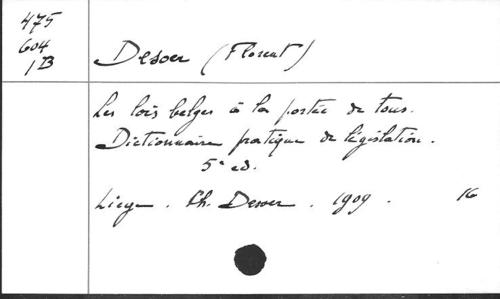 475
604
1B
Desoer (Florent)
Les lois belges à la portée de tous.
Dictionnaire pratique de législation.
5e ed.
Liege. Ch. Desoer. 1909. 16